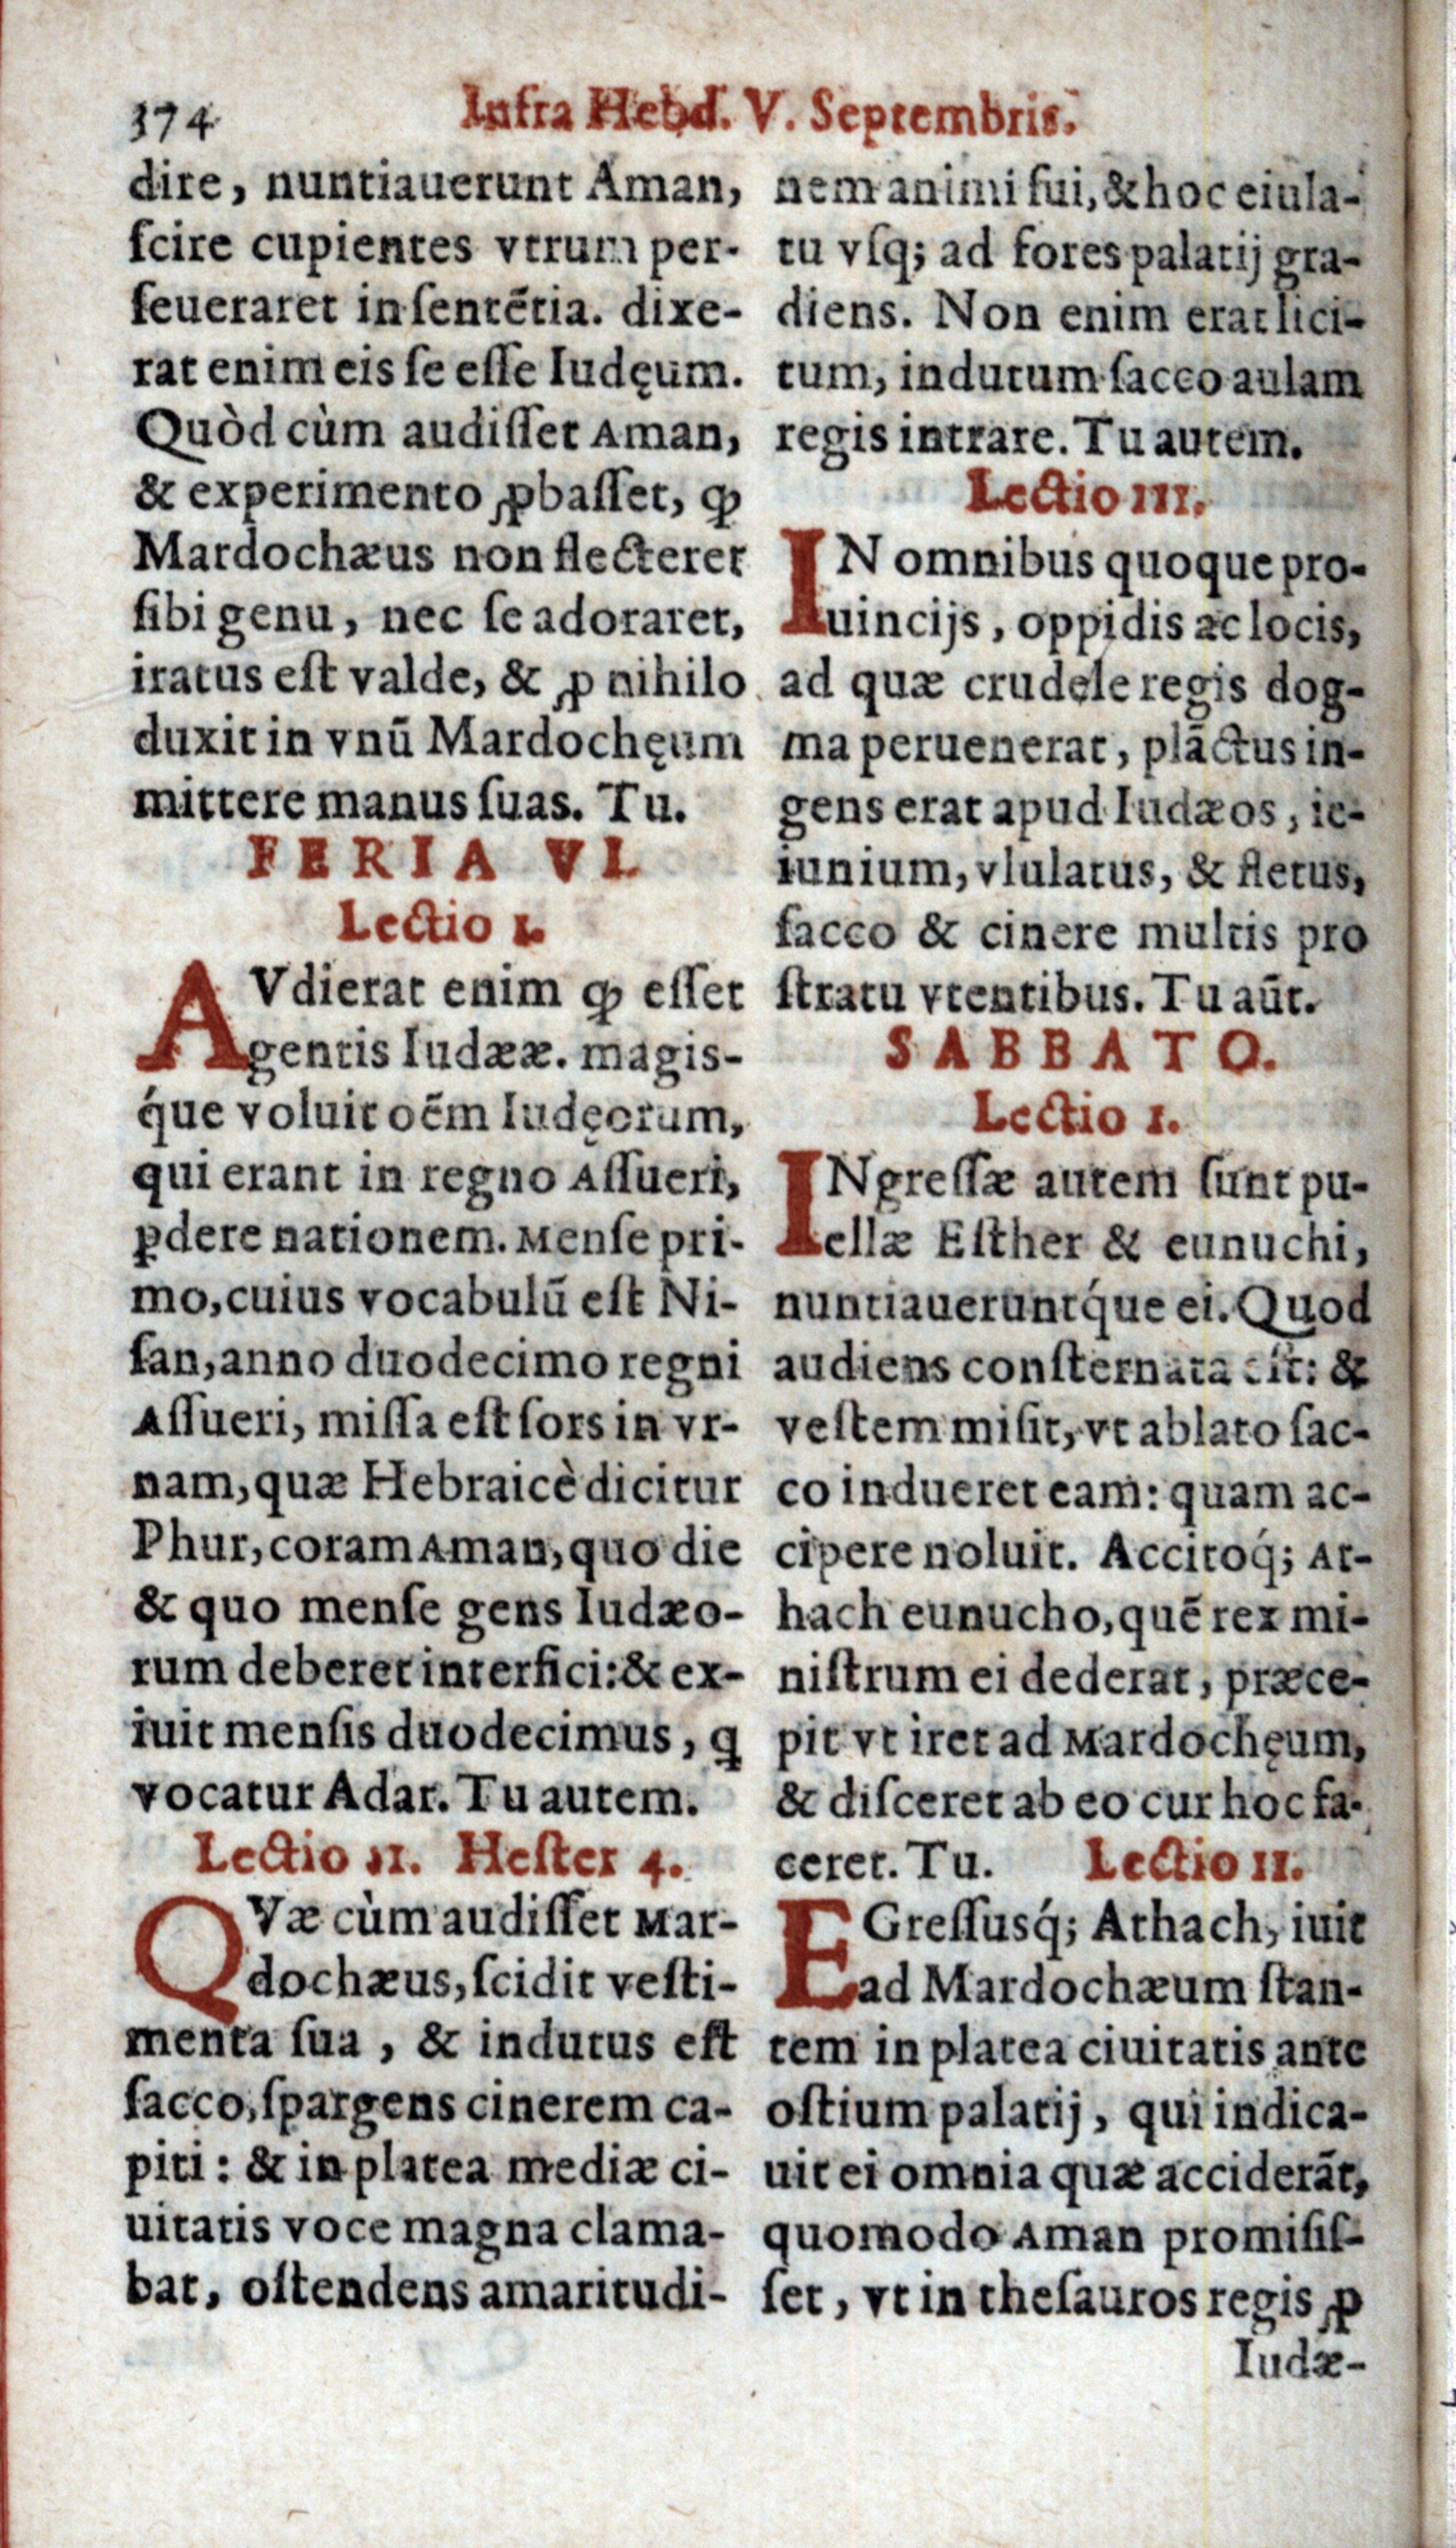 374
Infra Hebd. V. Septembris.
dire, nuntiauerunt Aman,
ſcire cupientes vtrum per-
ſeueraret in ſentẽtia. dixe-
rat enim eis ſe eſſe Iudęum.
Quòd cùm audiſſet Aman,
& experimento ꝓbaſſet, ꝙ
Mardochæus non flecteret
ſibi genu, nec ſe adoraret,
iratus eſt valde, & ꝓ nihilo
duxit in vnũ Mardochęum
mittere manus ſuas. Tu.
FERIA VI.
Lectio I.
AVdierat enim ꝙ eſſet
gentis Iudææ. magis-
q́ue voluit oẽm Iudęorum,
qui erant in regno Aſſueri,
ꝑdere nationem. Menſe pri-
mo, cuius vocabulũ eſt Ni-
ſan, anno duodecimo regni
Aſſueri, miſſa eſt ſors in vr-
nam, quæ Hebraicè dicitur
Phur, coram Aman, quo die
& quo menſe gens Iudæo-
rum deberet interfici: & ex-
iuit menſis duodecimus, ꝗ
vocatur Adar. Tu autem.
Lectio II. Heſter 4.
QVæ cùm audiſſet Mar-
dochæus, ſcidit veſti-
menta ſua, & indutus eſt
ſacco, ſpargens cinerem ca-
piti: & in platea mediæ ci-
uitatis voce magna clama-
bat, oſtendens amaritudi-
nem animi ſui, & hoc eiula-
tu vſq; ad fores palatij gra-
diens. Non enim erat lici-
tum, indutum ſacco aulam
regis intrare. Tu autem.
Lectio III.
IN omnibus quoque pro-
uincijs, oppidis ac locis,
ad quæ crudele regis dog-
ma peruenerat, plãctus in-
gens erat apud Iudæos, ie-
iunium, vlulatus, & fletus,
ſacco & cinere multis pro
ſtratu vtentibus. Tu aũt.
SABBATO.
Lectio I.
INgreſſæ autem ſunt pu-
ellæ Eſther & eunuchi,
nuntiaueruntq́ue ei. Quod
audiens conſternata eſt: &
veſtem miſit, vt ablato ſac-
co indueret eam: quam ac-
cipere noluit. Accitoq́; At-
hach eunucho, quẽ rex mi-
niſtrum ei dederat, præce-
pit vt iret ad Mardochęum,
& diſceret ab eo cur hoc fa-
ceret. Tu. Lectio II.
EGreſſusq́; Athach, iuit
ad Mardochæum ſtan-
tem in platea ciuitatis ante
oſtium palatij, qui indica-
uit ei omnia quæ acciderãt,
quomodo Aman promiſiſ-
ſet, vt in theſauros regis ꝓ
Iudæ-